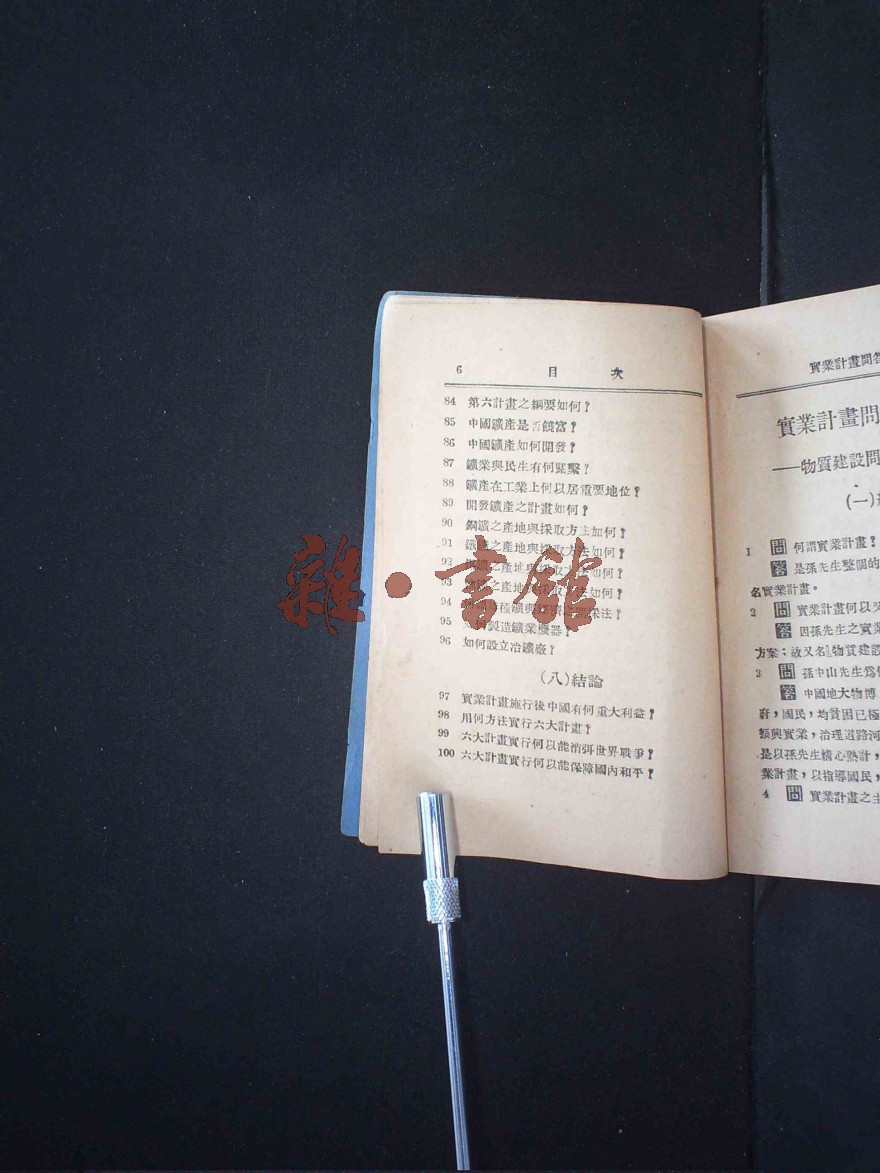 6 目 次
84 第六計畫之綱要如何?
85 中國鑛產是否饒富?
86 中國鑛產如何開發?
87 鑛業與民生有何緊繫?
88 鑛產在工業上何以居重要地位?
89 開發鑛產之計畫如何?
90 鋼鑛之產地與採取方法如何?
91 之產地與採取方法如何?
92 之產地與採取方法如何?
93 之產地與採取方法如何?
94 種鑛與採法?
95 何製造鑛業機器?
96 如何設立冶鑛廠?
(八)結論
97 實業計畫施行後中國有何重大利益?
98 用何方法實行六大計畫?
99 六大計畫實行何以能消弭世界戰爭?
100 六大計畫實行何以能保障國內和平?
實業計畫問答
實業計畫問
——物質建設問
(一)
1 問 何謂實業計畫?
答 是孫先生整個的
名實業計畫。
2 問 實業計畫何以又
答 因孫先生之實業
方案;故又名物質建設
3 問 孫中山先生爲何
答 中國地大物博
府,國民,均貧困已極
振興實業,治理道路河
是以孫先生精心熟計,
業計畫,以指導國民,
4 問 實業計畫之主
雜·書館